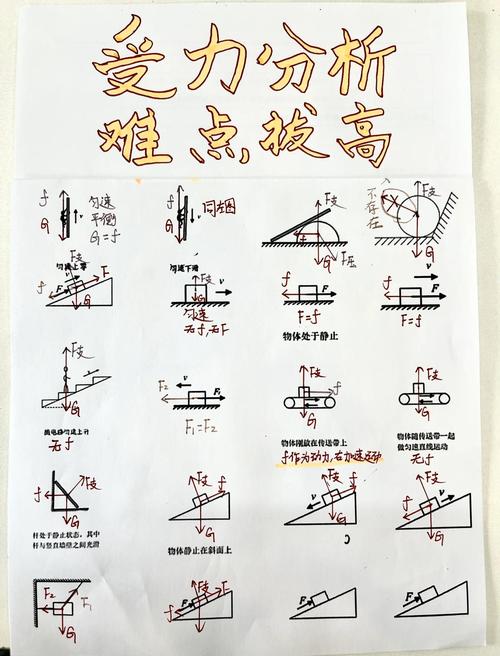 受力分析
难点拔高
f
匀速
平衡
G=f
G
f
同左图
G
f
G
F压
不存在
F支
G
匀速上攀
F支
f
F
F
G
匀速下滑
F支
v
G
匀速
无f,无F
F支
f
F
G
F=f
物体处于静止
F支
v
f
F
G
F=f
F支
G
随电梯匀速上升
无f
F2
v
F
F1=F2
F支
f
G
物体刚放在传送带上
f作为动力,右加速运动
F支
v
G
物体随传送带一起
做匀速直线运动
无f
f
F支
G
杆处于静止状态,其中
杆与竖直墙壁之间光滑
F支
f
G
物体静止在斜面上
F支
f
v
G
F支
v
f
G
F2
F1
G
F支
F
f
F
G
F
F